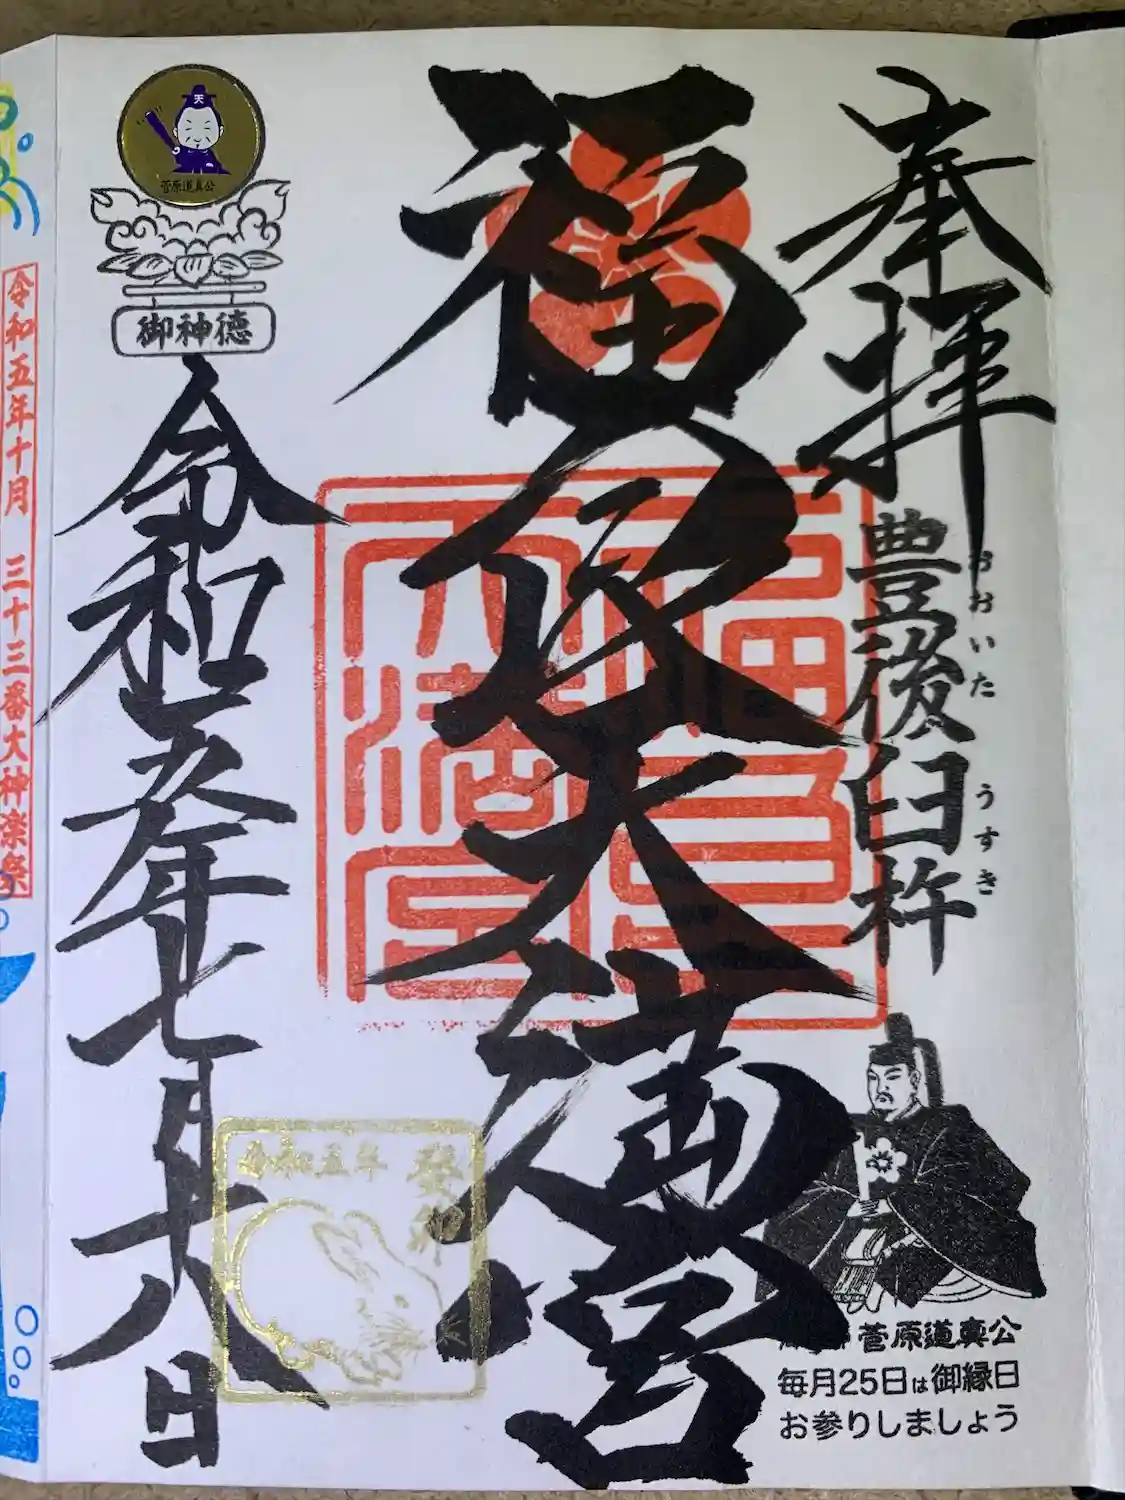 奉拝
豊後臼杵
おおいた
うすき
福良天満宮
福良
天満宮
菅原道真公
毎月25日は御縁日
お参りしましょう
天
菅原道真公
御神徳
令和五年七月十八日
令和五年
癸卯
令和五年十月 三十三番大神楽祭